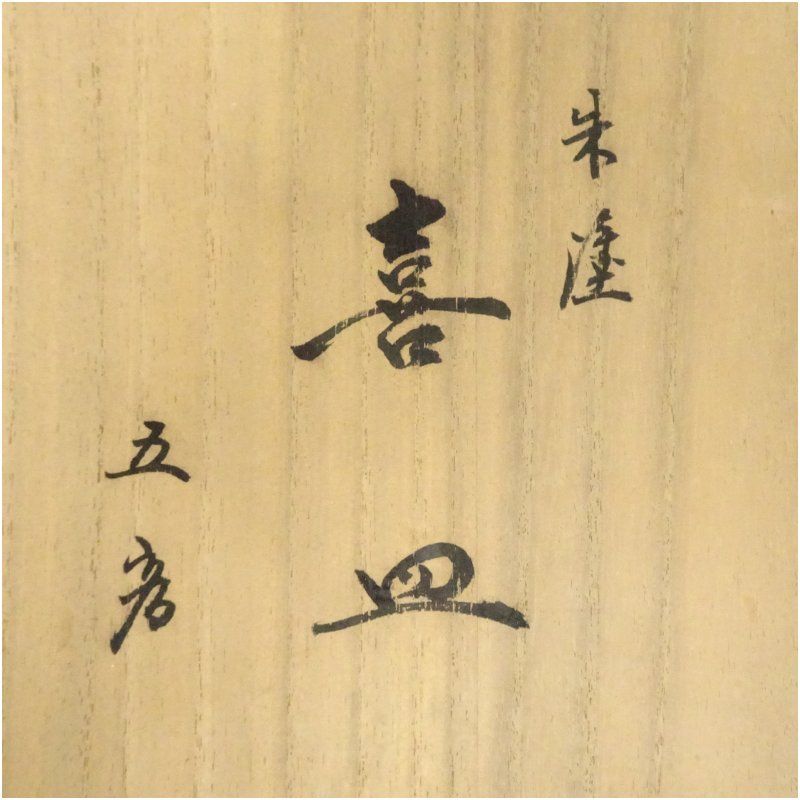 朱塗
喜皿
五客